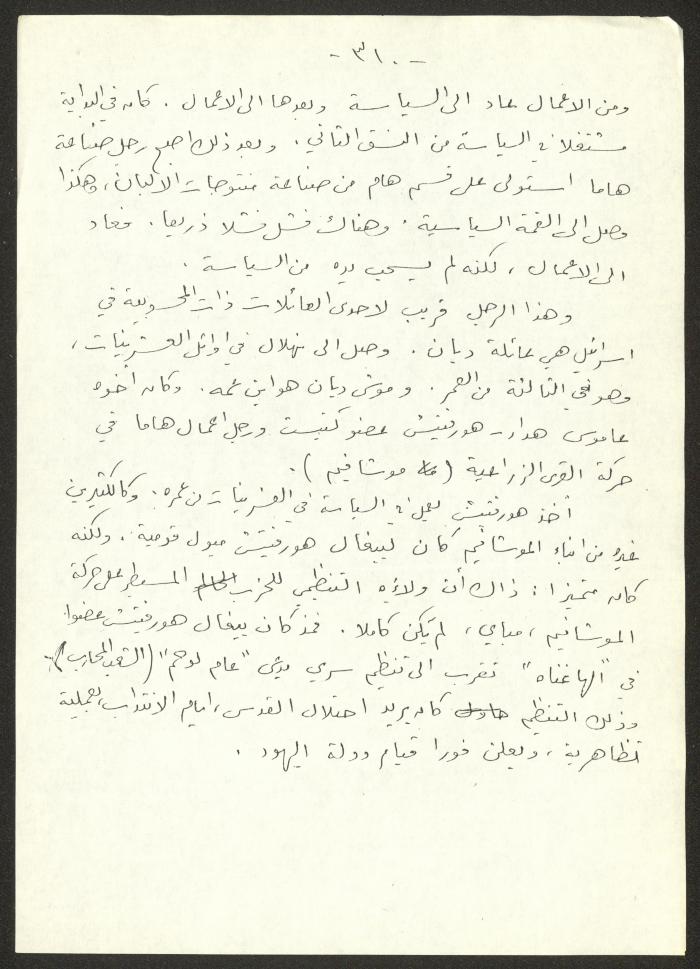 - ٣١٠ -
ومن الاعمال عاد الى السياسة وبعدها الى الاعمال . كان في البداية
مشتغلا في السياسة من النسق الثاني . وبعد ذلك اصبح رجل صناعة
هاما استولى على قسم هام من صناعة منتوجات الالبان ، وهكذا
وصل الى القمة السياسية . وهناك فشل فشلا ذريعا . فعاد
الى الاعمال ، لكنه لم يسحب يده من السياسة .
وهذا الرجل قريب لاحدى العائلات ذات المحسوبية في
اسرائيل هي عائلة ديان . وصل الى نهلال في اوائل العشرينات ،
وهو في الثالثة من العمر . وموشى ديان هو ابن عمه . وكان أخوه
عاموس هدار - هورفيتش عضو كنيست ورجل اعمال هاما في
حركة القرى الزراعية ( موشافيم ) .
أخذ هورفيتش يعمل في السياسة في العشرينات من عمره . وكالكثيرين
غيره من ابناء الموشافيم كان ليغال هورفيتش ميول قومية . ولكنه
كان متميزا : ذاك أن ولاءه التنظيمي للحزب المسيطر على حركة
الموشافيم ، مباي ، لم يكن كاملا . فمذ كان يغال هورفيتش عضوا
في "الهاغناه" تقرب الى تنظيم سري يدعى "عام لوحم" (الشعب المحارب) .
وذلك التنظيم كان يريد احتلال القدس ، ايام الانتداب ، بعملية
تظاهرية ، ويعلن فورا قيام دولة اليهود .